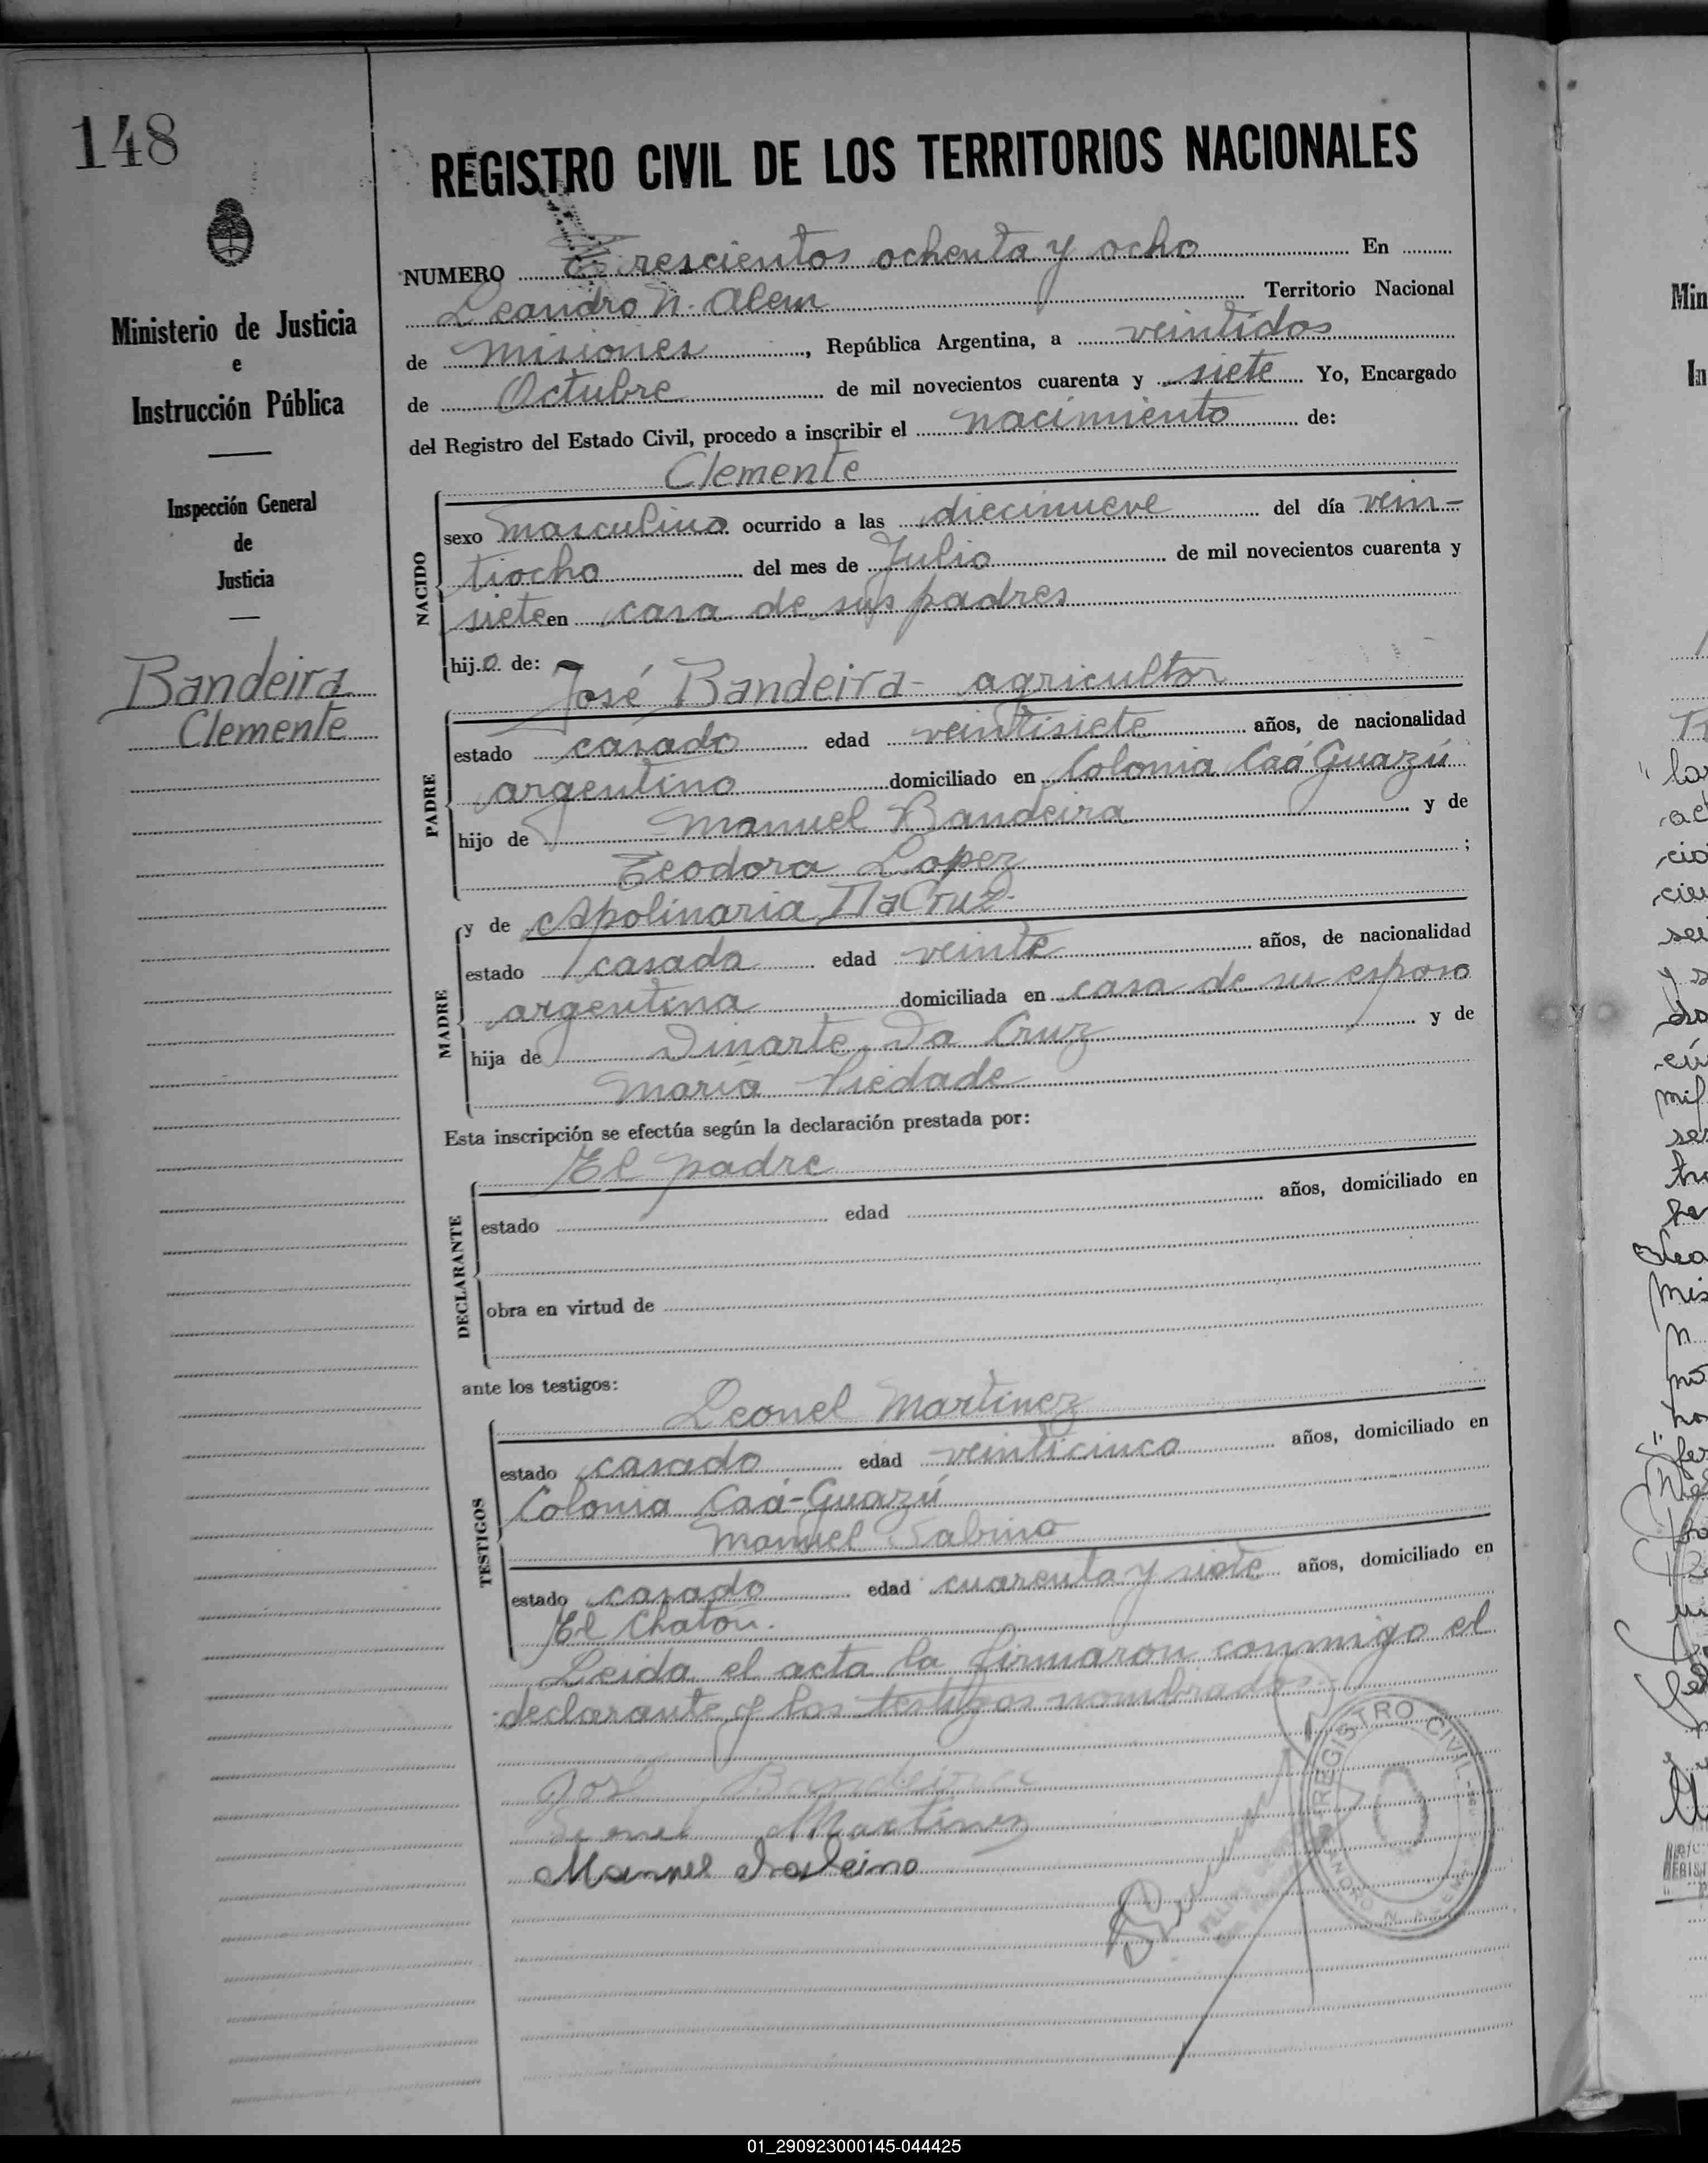 148
Ministerio de Justicia
e
Instrucción Pública
Inspección General
de
Justicia
Bandeira
Clemente
REGISTRO CIVIL DE LOS TERRITORIOS NACIONALES
NUMERO Trescientos ochenta y ocho En
Leandro N. Alem Territorio Nacional
de Misiones, República Argentina, a veintidos
de Octubre de mil novecientos cuarenta y siete Yo, Encargado
del Registro del Estado Civil, procedo a inscribir el nacimiento de:
Clemente
NACIDO
sexo masculino ocurrido a las diecinueve del día vein-
tiocho del mes de Julio de mil novecientos cuarenta y
siete en casa de sus padres
hijo de:
José Bandeira - agricultor
PADRE
estado casado edad veintisiete años, de nacionalidad
argentino domiciliado en Colonia Caá Guazú
hijo de Manuel Bandeira y de
Teodora Lopez ;
y de Apolinaria Da Cruz
MADRE
estado casada edad veinte años, de nacionalidad
argentina domiciliada en casa de su esposo
hija de Dinarte Da Cruz y de
María Piedade
Esta inscripción se efectúa según la declaración prestada por:
El padre
DECLARANTE
estado edad años, domiciliado en
obra en virtud de
ante los testigos:
Leonel Martinez
TESTIGOS
estado casado edad veinticinco años, domiciliado en
Colonia Caá-Guazú
Manuel Sabino
estado casado edad cuarenta y siete años, domiciliado en
El Chatón.
Leida el acta la firmaron conmigo el
declarante y los testigos nombrados
José Bandeira
Leonel Martínez
Manuel Sabino
REGISTRO CIVIL
01_290923000145-044425